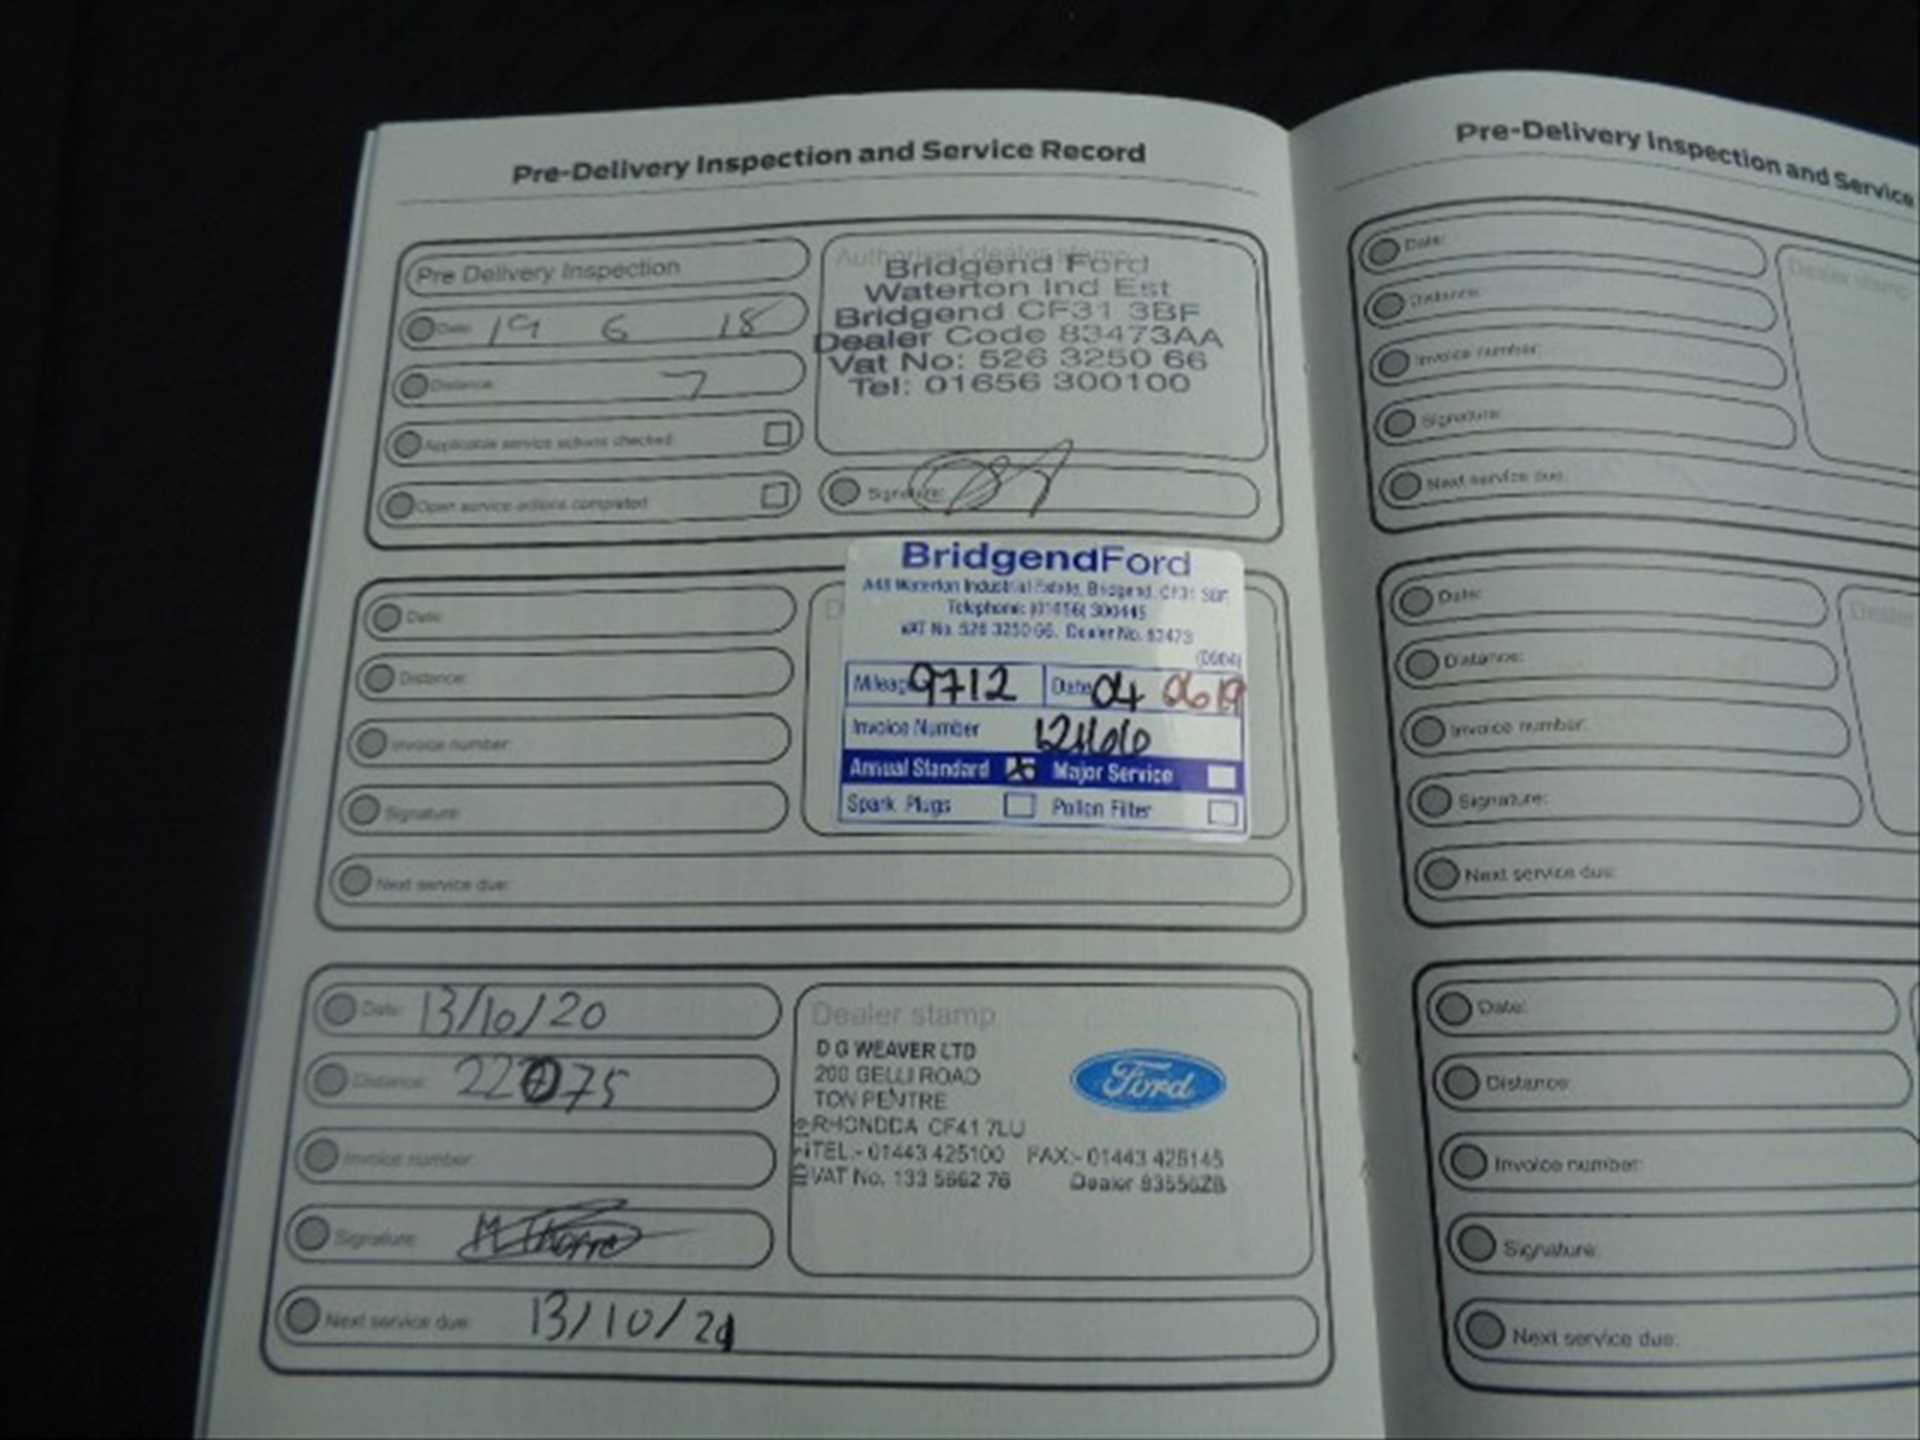 Pre-Delivery Inspection and Service Record
Pre Delivery Inspection
Date: 19 6 18
Distance: 7
Applicable service actions checked:
Open service actions completed:
Authorised dealer stamp
Bridgend Ford
Waterton Ind Est
Bridgend CF31 3BF
Dealer Code 83473AA
Vat No: 526 3250 66
Tel: 01656 300100
Signature:
Date:
Distance:
Invoice number:
Signature:
Next service due:
BridgendFord
A48 Waterton Industrial Estate, Bridgend, CF31
Telephone: (01656) 300445
VAT No. 526 3250 66. Dealer No. 83473
Mileage 9712 Date 04 06 19
Invoice Number
Annual Standard Major Service
Spark Plugs Pollen Filter
Date: 13/10/20
Distance: 22075
Invoice number:
Signature: M Thorne
Next service due: 13/10/21
Dealer stamp
D G WEAVER LTD
200 GELLI ROAD
TON PENTRE
RHONDDA CF41 7LU
TEL:- 01443 425100 FAX:- 01443 425145
VAT No. 133 5662 76 Dealer 83556ZB
Ford
Pre-Delivery Inspection and Service
Date:
Distance:
Invoice number:
Signature:
Next service due:
Dealer stamp
Date:
Distance:
Invoice number:
Signature:
Next service due:
Dealer
Date:
Distance:
Invoice number:
Signature:
Next service due: